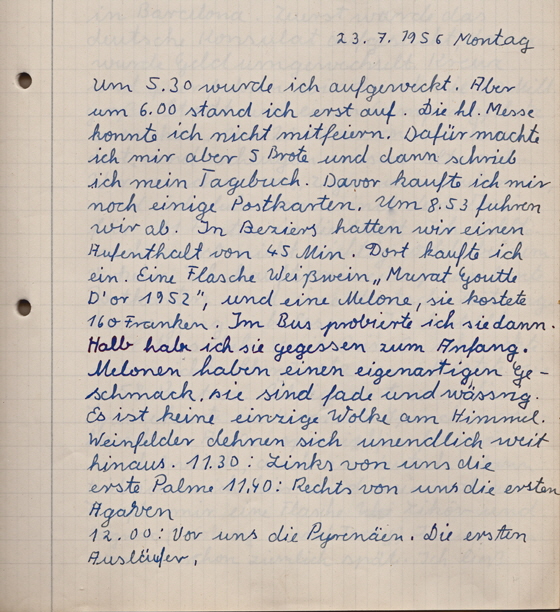 23.7.1956 Montag
Um 5.30 wurde ich aufgeweckt. Aber
um 6.00 stand ich erst auf. Die hl. Messe
konnte ich nicht mitfeiern. Dafür machte
ich mir aber 5 Brote und dann schrieb
ich mein Tagebuch. Davor kaufte ich mir
noch einige Postkarten. Um 8.53 fuhren
wir ab. In Beziers hatten wir einen
Aufenthalt von 45 Min. Dort kaufte ich
ein. Eine Flasche Weißwein „Murat Goutte
D'or 1952", und eine Melone, sie kostete
160 Franken. Im Bus probierte ich sie dann.
Halb habe ich sie gegessen zum Anfang.
Melonen haben einen eigenartigen Ge-
schmack, sie sind fade und wässrig.
Es ist keine einzige Wolke am Himmel.
Weinfelder dehnen sich unendlich weit
hinaus. 11.30: Links von uns die
erste Palme 11,40: Rechts von uns die ersten
Agaven
12.00: Vor uns die Pyrenäen. Die ersten
Ausläufer,